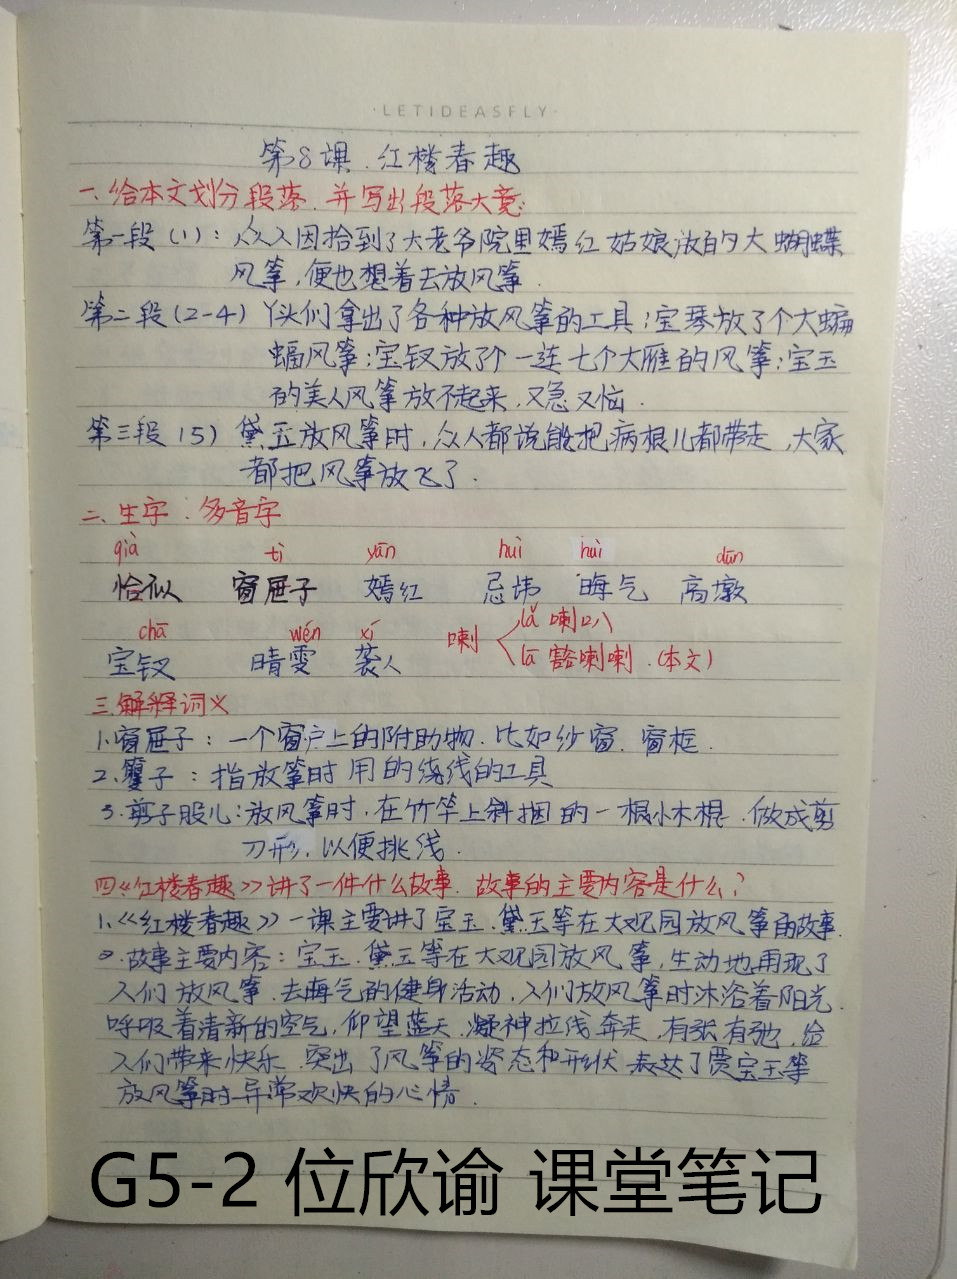 ·LETIDEASFLY·
第8课.红楼春趣
一、给本文划分段落.并写出段落大意:
第一段(1): 众人因拾到了大老爷院里嫣红姑娘放的大蝴蝶
风筝,便也想着去放风筝.
第二段(2-4)丫头们拿出了各种放风筝的工具;宝琴放了个大蝙
蝠风筝;宝钗放了个一连七个大雁的风筝;宝玉
的美人风筝放不起来.又急又恼.
第三段(5) 黛玉放风筝时,众人都说能把病根儿都带走,大家
都把风筝放飞了.
二、生字.多音字
qià tì yān huì huì dūn
恰似 窗屉子 嫣红 忌讳 晦气 高墩
chā wén xí lǎ 喇叭
宝钗 晴雯 袭人 喇 lā 豁喇喇.(本文)
三.解释词义
1.窗屉子: 一个窗户上的附助物.比如纱窗.窗框.
2.籰子: 指放筝时用的绕线的工具
3.剪子股儿:放风筝时,在竹竿上斜捆的一根小木棍.做成剪
刀形,以便挑线.
四《红楼春趣》讲了一件什么故事.故事的主要内容是什么?
1.《红楼春趣》一课主要讲了宝玉.黛玉等在大观园放风筝的故事.
2.故事主要内容: 宝玉.黛玉等在大观园放风筝,生动地再现了
人们放风筝.去晦气的健身活动,人们放风筝时沐浴着阳光.
呼吸着清新的空气,仰望蓝天.凝神拉线奔走,有张有弛,给
人们带来快乐.突出了风筝的姿态和形状 表达了贾宝玉等
放风筝时异常欢快的心情.
G5-2 位欣谕 课堂笔记